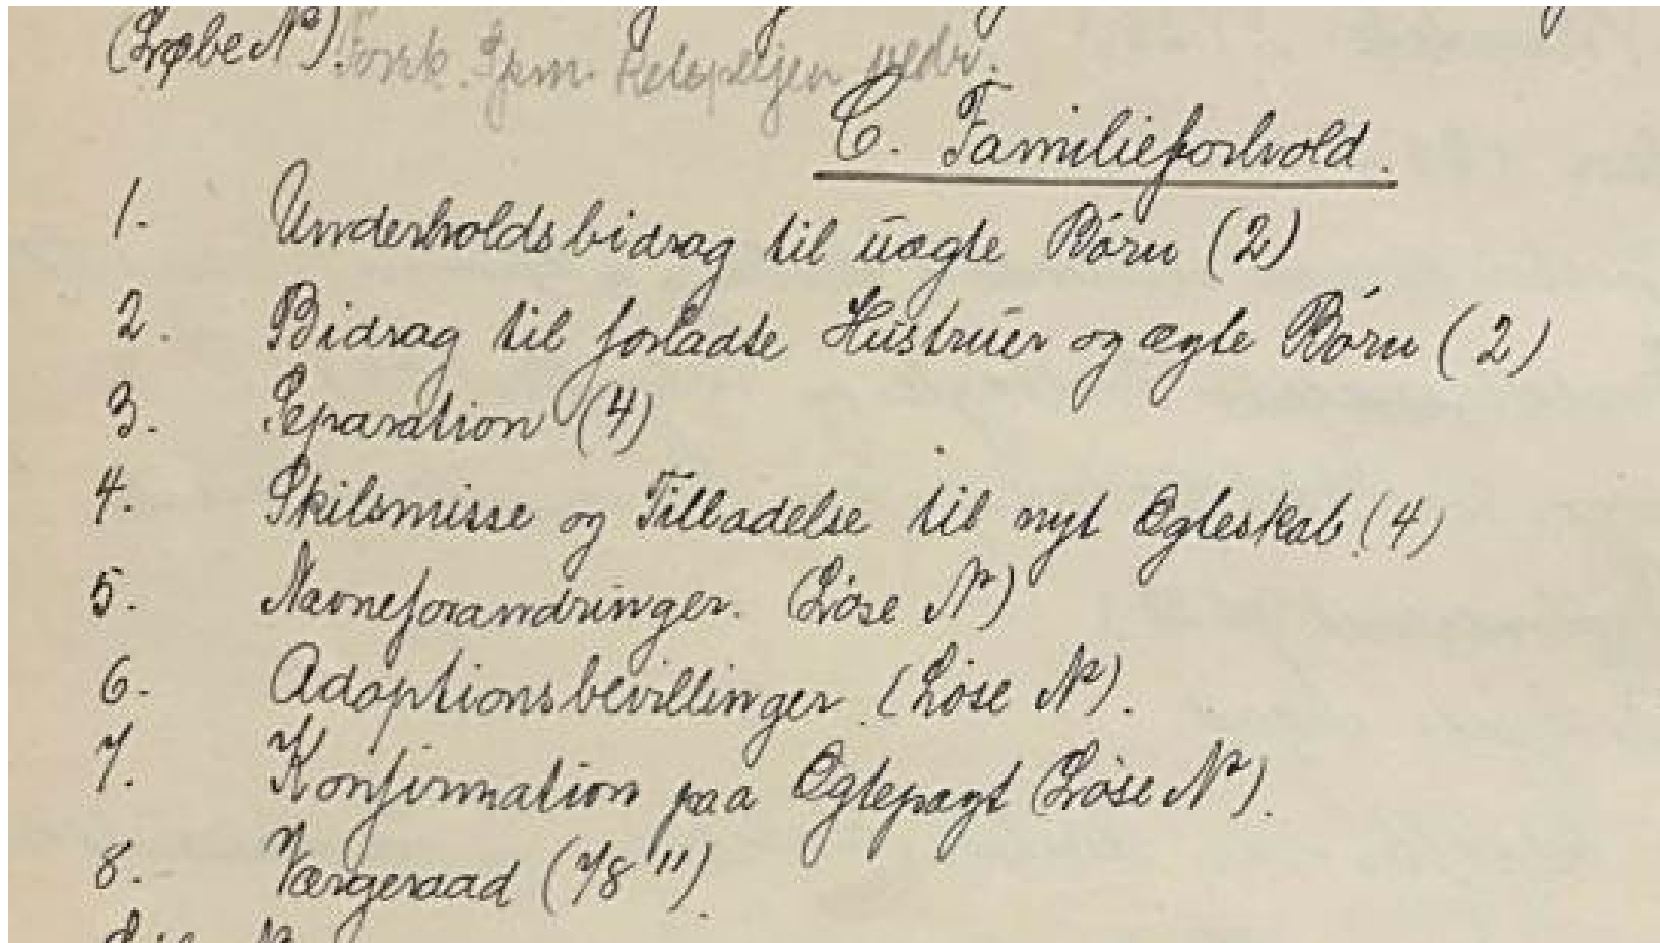 (Løbe №). Forsk. Spm. vedr.
C. Familieforhold.
1. Underholdsbidrag til uægte Børn (2)
2. Bidrag til forladte Hustruer og ægte Børn (2)
3. Separation (4)
4. Skilsmisse og Tilladelse til nyt Ægteskab (4)
5. Navneforandringer. (Löse №)
6. Adoptionsbevillinger (Löse №).
7. Konfirmation paa Ægtepagt (Löse №).
8. Værgeraad (7/8 11).